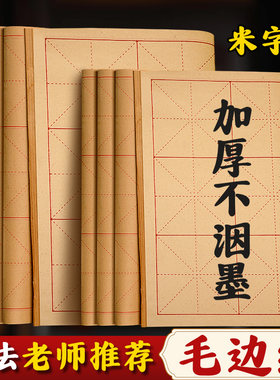 米字
加厚不洇墨
法老师推荐
毛边纟